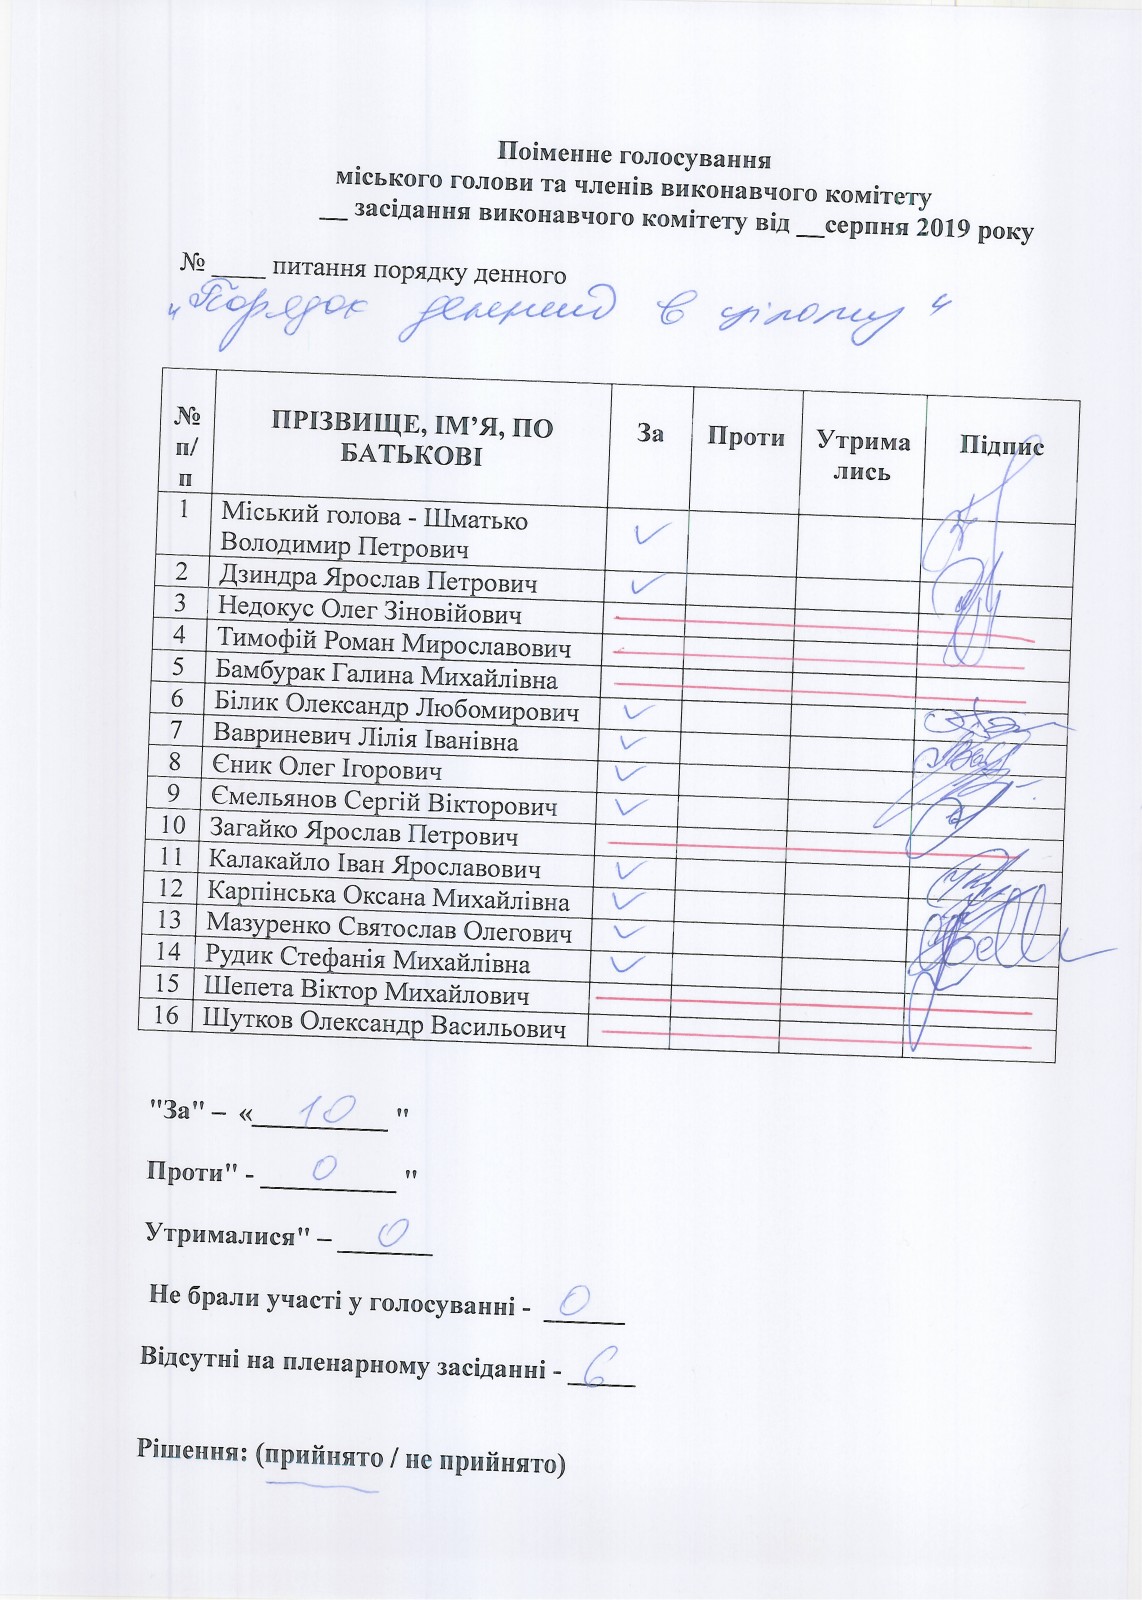 Поіменне голосування
міського голови та членів виконавчого комітету
__ засідання виконавчого комітету від __серпня 2019 року
№ ____ питання порядку денного
"Порядок денний в цілому"
№ п/п ПРІЗВИЩЕ, ІМ’Я, ПО БАТЬКОВІ За Проти Утрима лись Підпис
1 Міський голова - Шматько
Володимир Петрович ✓
2 Дзиндра Ярослав Петрович ✓
3 Недокус Олег Зіновійович
4 Тимофій Роман Мирославович
5 Бамбурак Галина Михайлівна
6 Білик Олександр Любомирович ✓
7 Вавриневич Лілія Іванівна ✓
8 Єник Олег Ігорович ✓
9 Ємельянов Сергій Вікторович ✓
10 Загайко Ярослав Петрович
11 Калакайло Іван Ярославович ✓
12 Карпінська Оксана Михайлівна ✓
13 Мазуренко Святослав Олегович ✓
14 Рудик Стефанія Михайлівна ✓
15 Шепета Віктор Михайлович
16 Шутков Олександр Васильович
"За" – «___10___ "
Проти" - ___0___ "
Утрималися" – ___0___
Не брали участі у голосуванні - __0__
Відсутні на пленарному засіданні - __6__
Рішення: (прийнято / не прийнято)